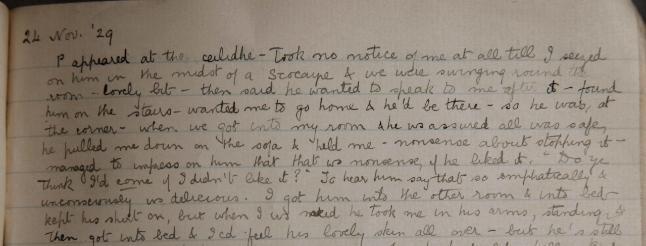 24 Nov. '29
P appeared at the ceilidhe - Took no notice of me at all till I seized
on him in the midst of a & we were swinging round the
room - lovely bit - then said he wanted to speak to me after it - found
him on the stairs - wanted me to go home & he'd be there - so he was, at
the corner - when we got into my room & he ws assured all was safe,
he pulled me down on the sofa & held me - nonsense about stopping it -
managed to impress on him that that ws nonsense, if he liked it. "Do ye
think I'd come if I didn't like it?" To hear him say that so emphatically &
unconsciously ws delicious. I got him into the other room & into bed -
kept his shirt on, but when I ws naked he took me in his arms, standing, &
then got into bed & I cd feel his lovely skin all over - but he's still